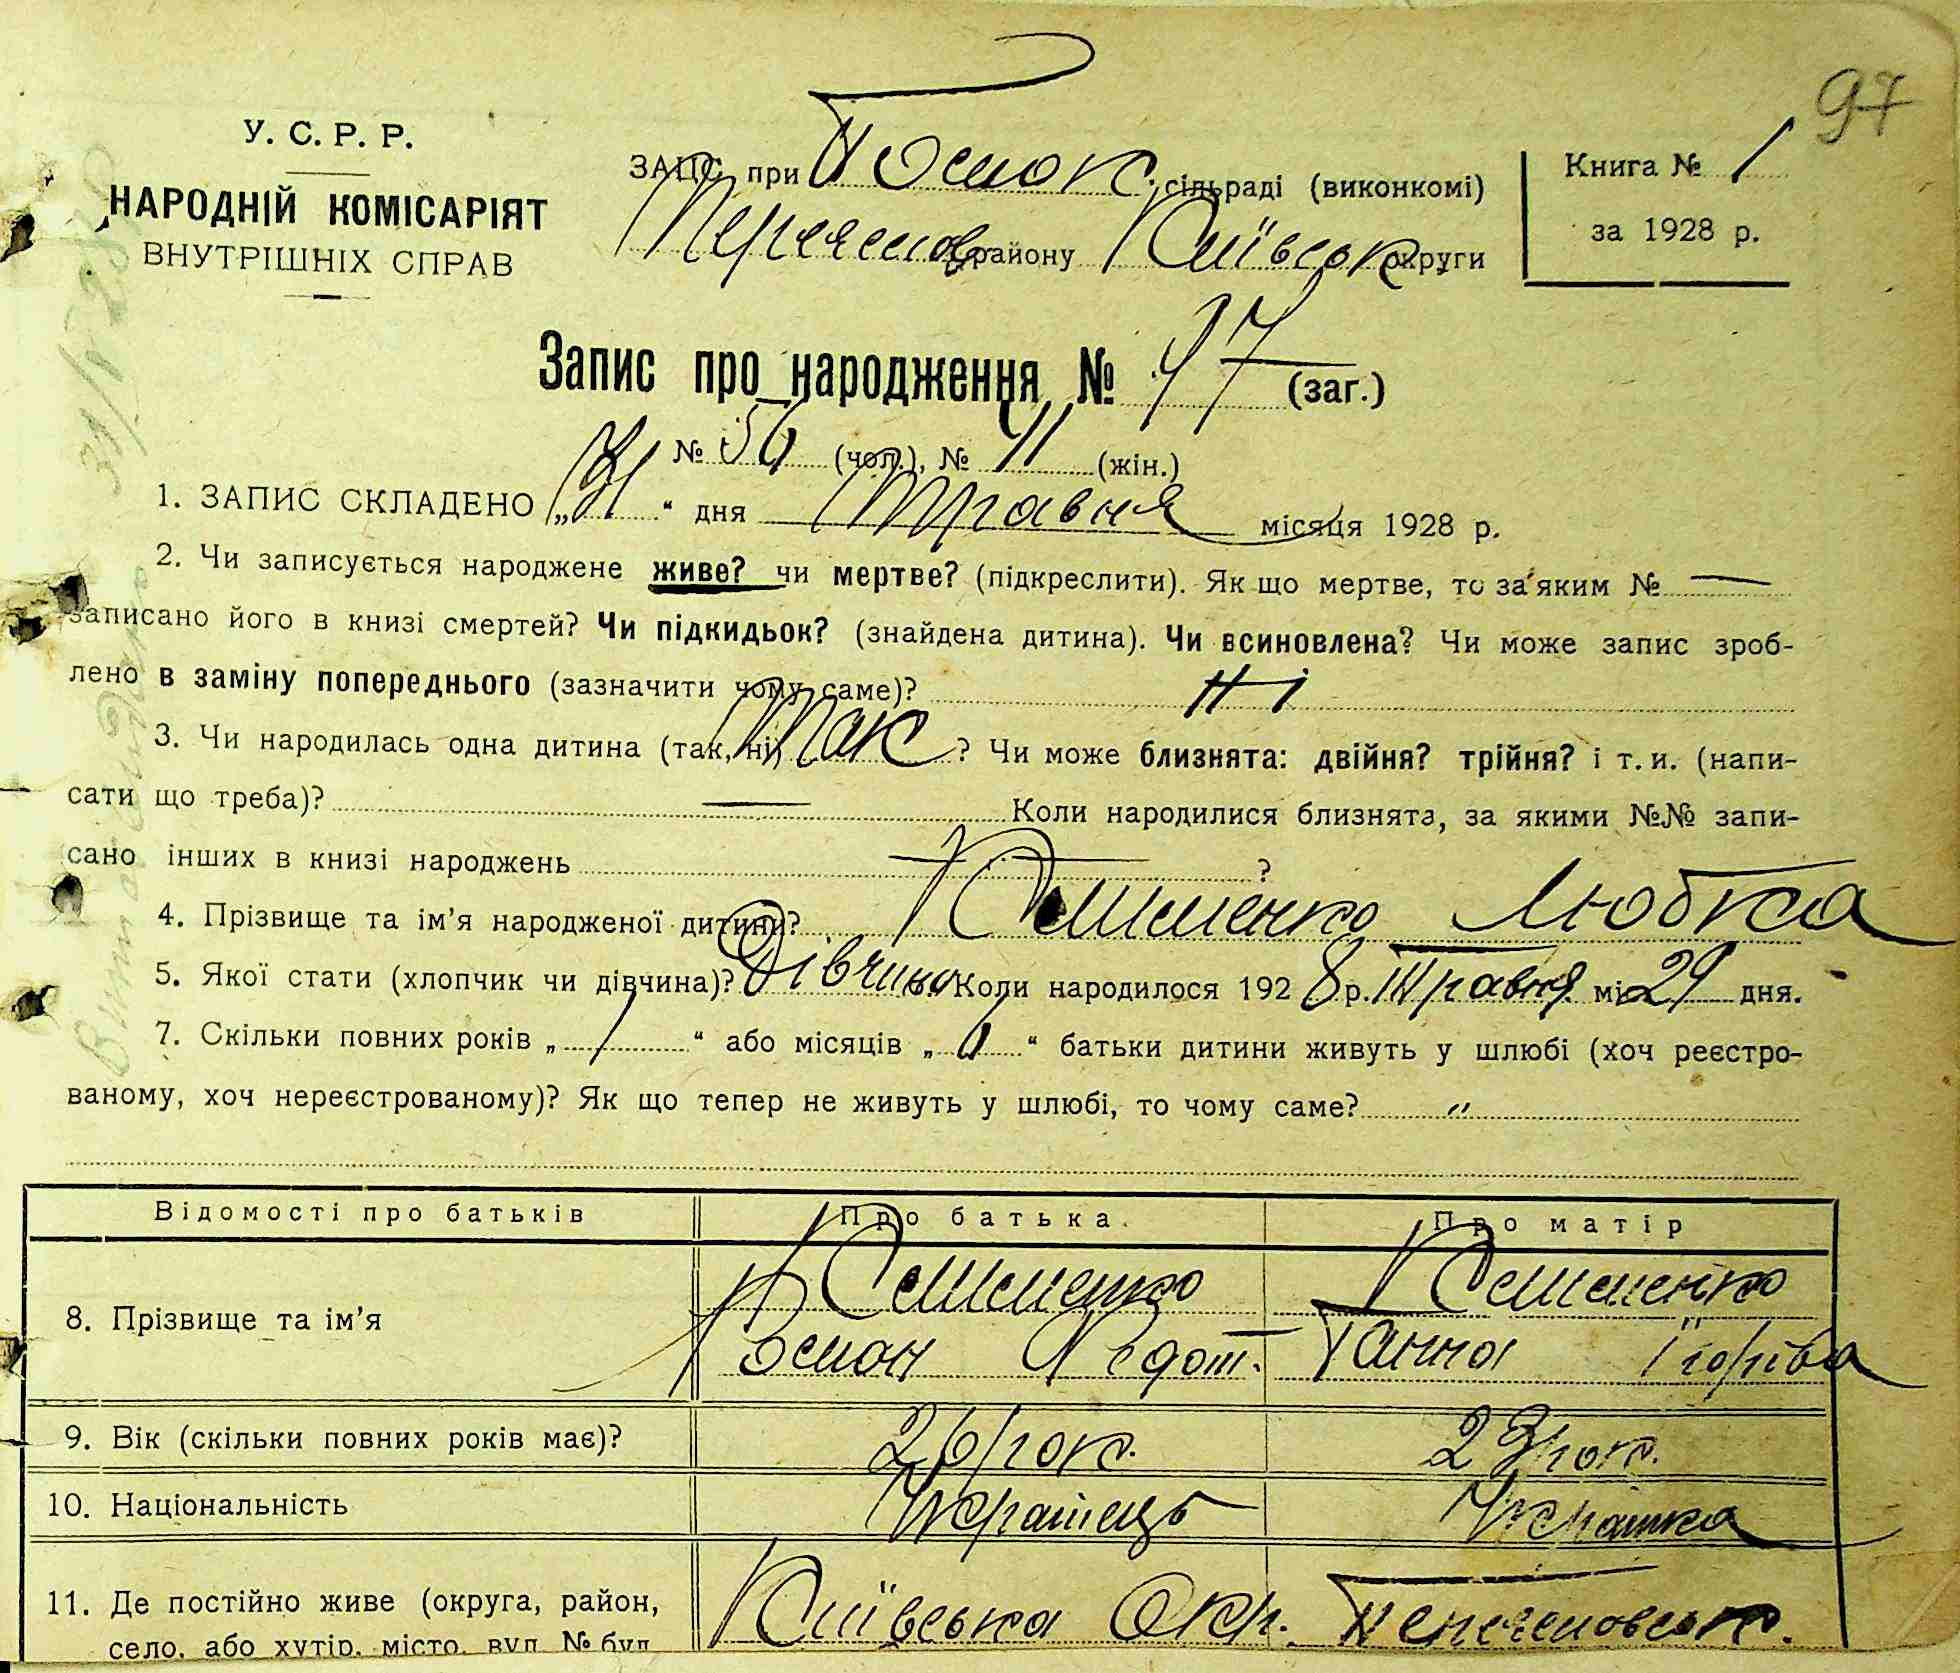 97
У. С. Р. Р.
НАРОДНІЙ КОМІСАРІЯТ
ВНУТРІШНІХ СПРАВ
ЗАГС при сільраді (виконкомі)
району Київськ. округи
Книга № 1
за 1928 р.
Запис про народження № 97 (заг.)
№ 56 (чол.), № 41 (жін.)
1. ЗАПИС СКЛАДЕНО „31“ дня Травня місяця 1928 р.
2. Чи записується народжене живе? чи мертве? (підкреслити). Як що мертве, то за яким № —
записано його в книзі смертей? Чи підкидьок? (знайдена дитина). Чи всиновлена? Чи може запис зроб-
лено в заміну попереднього (зазначити чому саме)? Ні
3. Чи народилась одна дитина (так, ні) Так ? Чи може близнята: двійня? трійня? і т. и. (напи-
сати що треба)? — Коли народилися близнята, за якими №№ запи-
сано інших в книзі народжень — ?
4. Прізвище та ім'я народженої дитини? Любка
5. Якої стати (хлопчик чи дівчина)? Дівчина 6. Коли народилося 1928 р. Травня міс. 29 дня.
7. Скільки повних років „ 1 “ або місяців „ “ батьки дитини живуть у шлюбі (хоч реєстро-
ваному, хоч нереєстрованому)? Як що тепер не живуть у шлюбі, то чому саме? „
Відомості про батьків Про батька Про матір
8. Прізвище та ім'я
Ганна
9. Вік (скільки повних років має)? 26 рок. 23 рок.
10. Національність Українець Українка
11. Де постійно живе (округа, район,
село, або хутір, місто, вул. № буд.
Київська Окр.